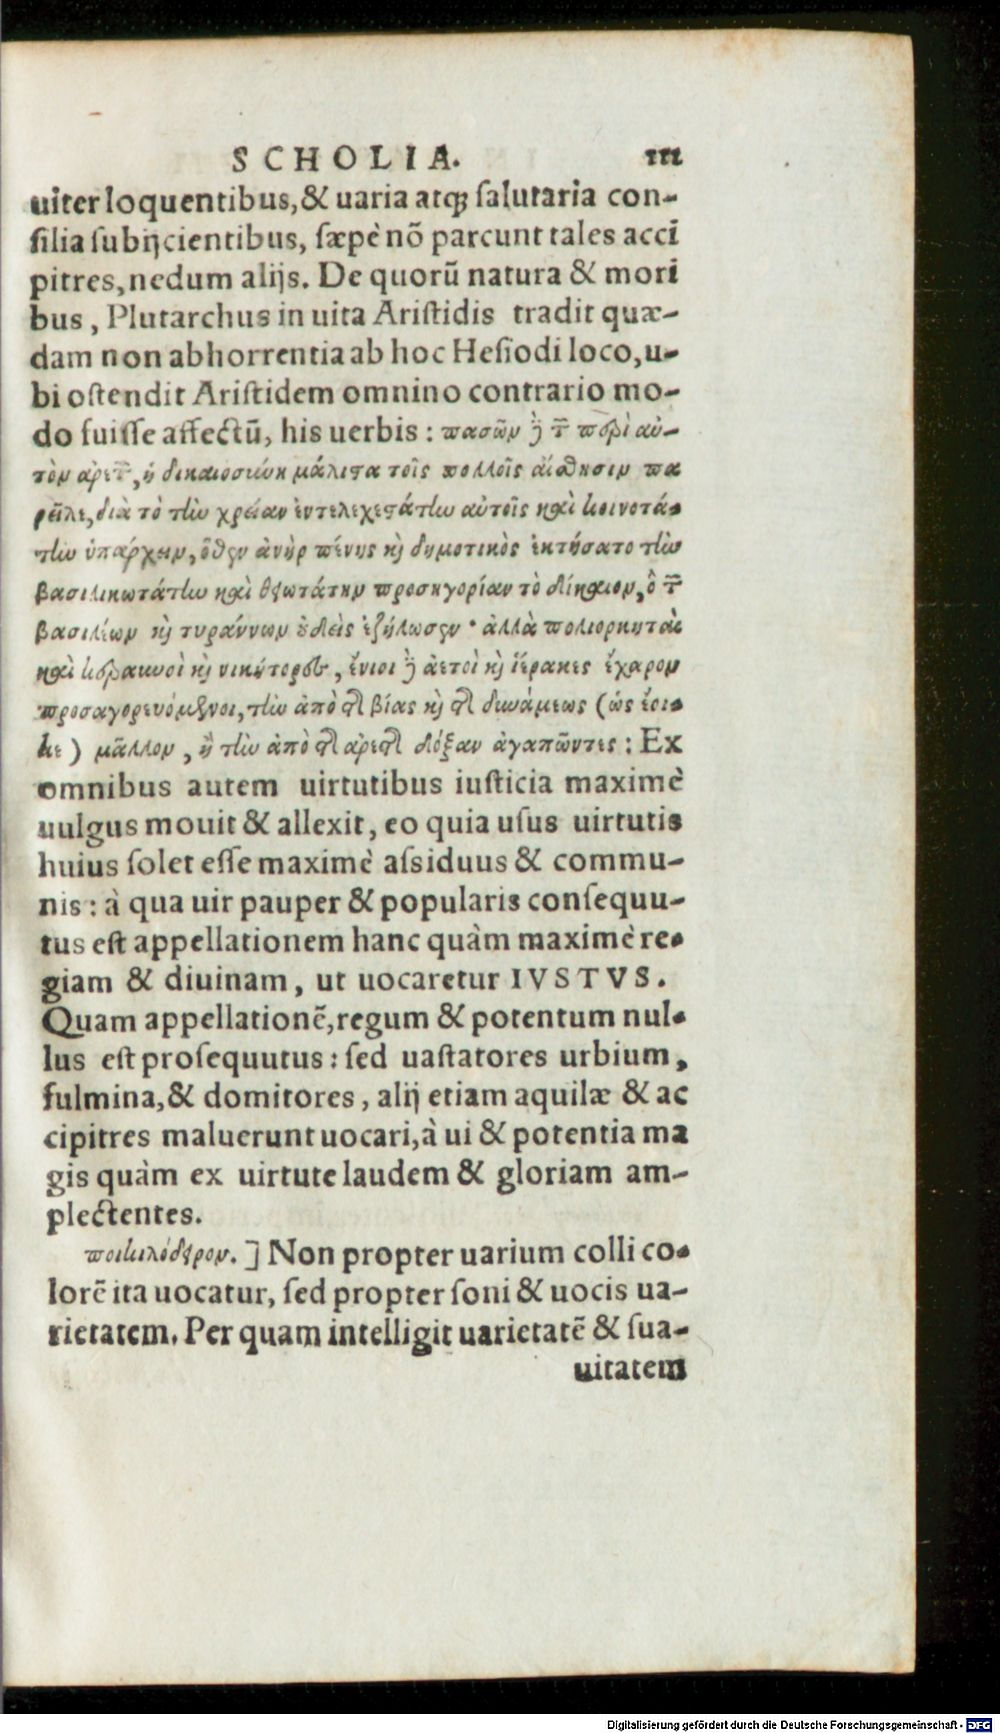 SCHOLIA. 111
uiter loquentibus, & uaria atq; ſalutaria con-
ſilia ſubijcientibus, ſæpè nõ parcunt tales acci
pitres, nedum alijs. De quorũ natura & mori
bus, Plutarchus in uita Ariſtidis tradit quæ-
dam non abhorrentia ab hoc Heſiodi loco, u-
bi oſtendit Ariſtidem omnino contrario mo-
do fuiſſe affectũ, his uerbis: πασῶν ϳ̀ τ̃ περὶ αὐ-
τὸν ἀρετ̃, ἡ δικαιοσύνη μάλιστα τοῖς πολλοῖς αἴσθησιν πα
ρεῖχε, διὰ τὸ τὴν χρείαν ἐντελεχεστάτην αὐτοῖς καὶ κοινοτά-
την ὑπάρχειν, ὅθεν ἀνὴρ πένης καὶ δημοτικὸς ἐκτήσατο τὴν
βασιλικωτάτην καὶ θειωτάτην προσηγορίαν τὸ δίκαιον, ὃ τ̃
βασιλέων καὶ τυράννων οὐδεὶς ἐζήλωσεν· ἀλλὰ πολιορκηταὶ
καὶ κεραυνοὶ καὶ νικάτορες, ἔνιοι ϳ̀ ἀετοὶ καὶ ἱέρακες ἔχαρον
προσαγορευόμενοι, τὴν ἀπὸ τῆς βίας καὶ τῆς δυνάμεως (ὡς ἔοι-
κε) μᾶλλον, ἢ τὴν ἀπὸ τῆς ἀρετῆς δόξαν ἀγαπῶντες: Ex
omnibus autem uirtutibus iuſticia maximè
uulgus mouit & allexit, eo quia uſus uirtutis
huius ſolet eſſe maximè aſsiduus & commu-
nis: à qua uir pauper & popularis conſequu-
tus eſt appellationem hanc quàm maximè re-
giam & diuinam, ut uocaretur IVSTVS.
Quam appellationẽ, regum & potentum nul-
lus eſt proſequutus: ſed uaſtatores urbium,
fulmina, & domitores, alij etiam aquilæ & ac
cipitres maluerunt uocari, à ui & potentia ma
gis quàm ex uirtute laudem & gloriam am-
plectentes.
ποικιλόδειρον.] Non propter uarium colli co-
lorẽ ita uocatur, ſed propter ſoni & uocis ua-
rietatem. Per quam intelligit uarietatẽ & ſua-
uitatem
Digitalisierung gefördert durch die Deutsche Forschungsgemeinschaft - DFG